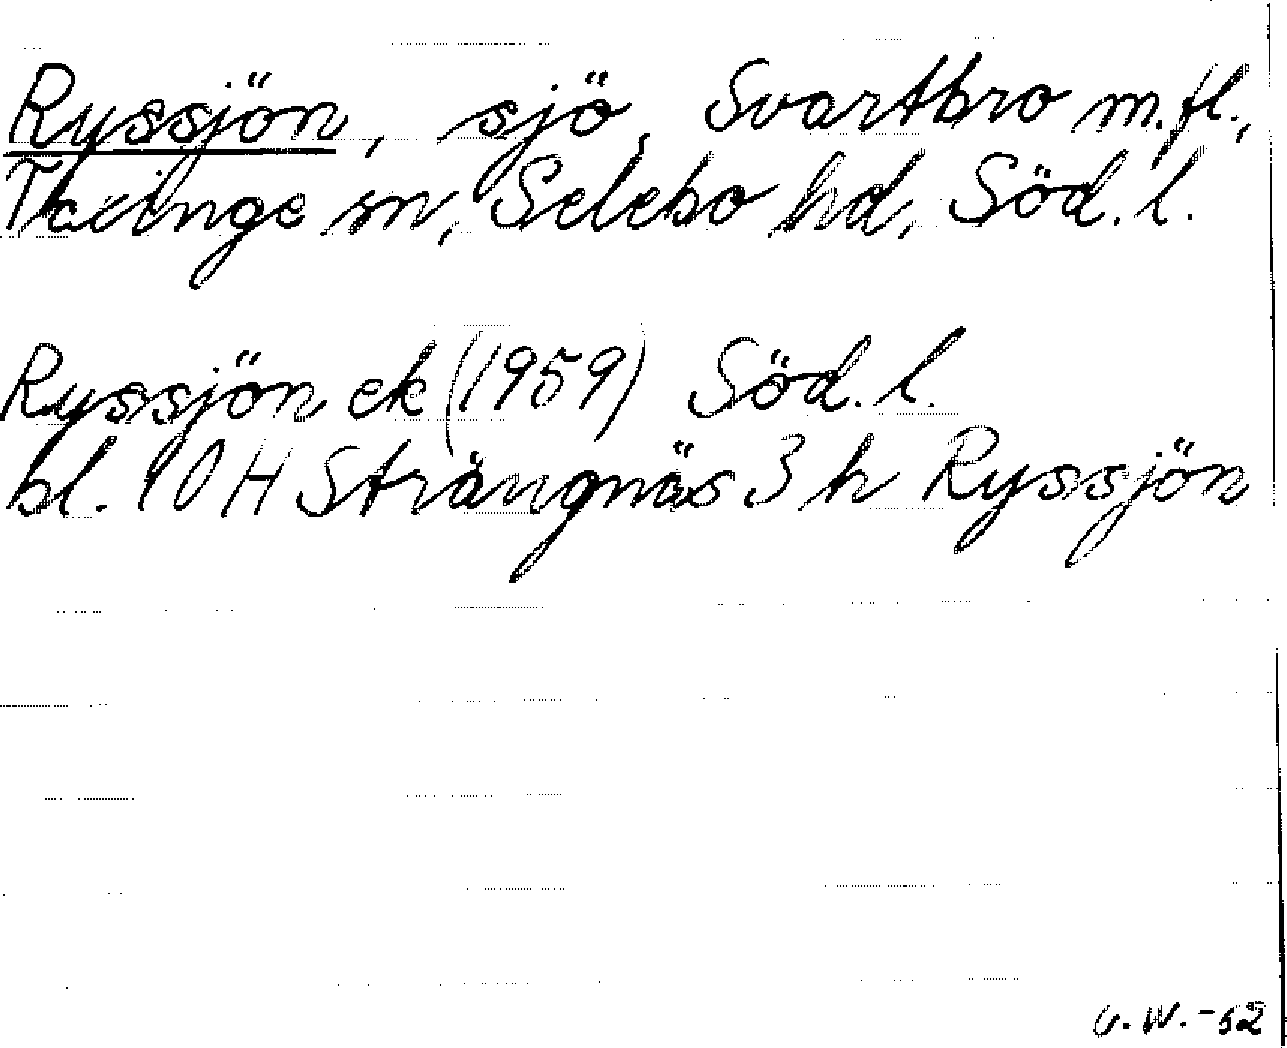 Ryssjön, sjö, Svartbro m.fl.,
Taxinge sn, Selebo hd, Söd. l.
Ryssjön ek (1959) Söd. l.
bl. 10 H Strängnäs 3 h Ryssjön